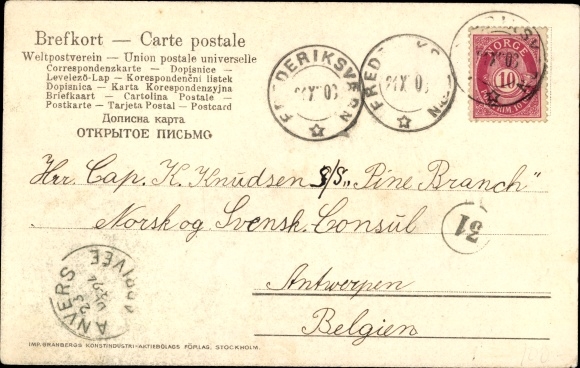 Brefkort – Carte postale
Weltpostverein – Union postale universelle
Correspondenzkarte – Dopisnice –
Levelező-Lap – Korespondenční listek
Dopisnica – Karta Korespondenzyjna
Briefkaart – Cartolina Postale –
Postkarte – Tarjeta Postal – Postcard
Дописна карта
ОТКРЫТОЕ ПИСЬМО
FREDERIKSVÆRN
FREDERIKSVÆRN
NORGE
10
Hrr. Cap. K. Knudsen S/S „Pine Branch"
Norsk og Svensk. Consul
31
Antwerpen
Belgien
ANVERS
ARRIVÉE
IMP. BRANBERGS KONSTINDUSTRI-AKTIEBOLAGS FÖRLAG, STOCKHOLM.